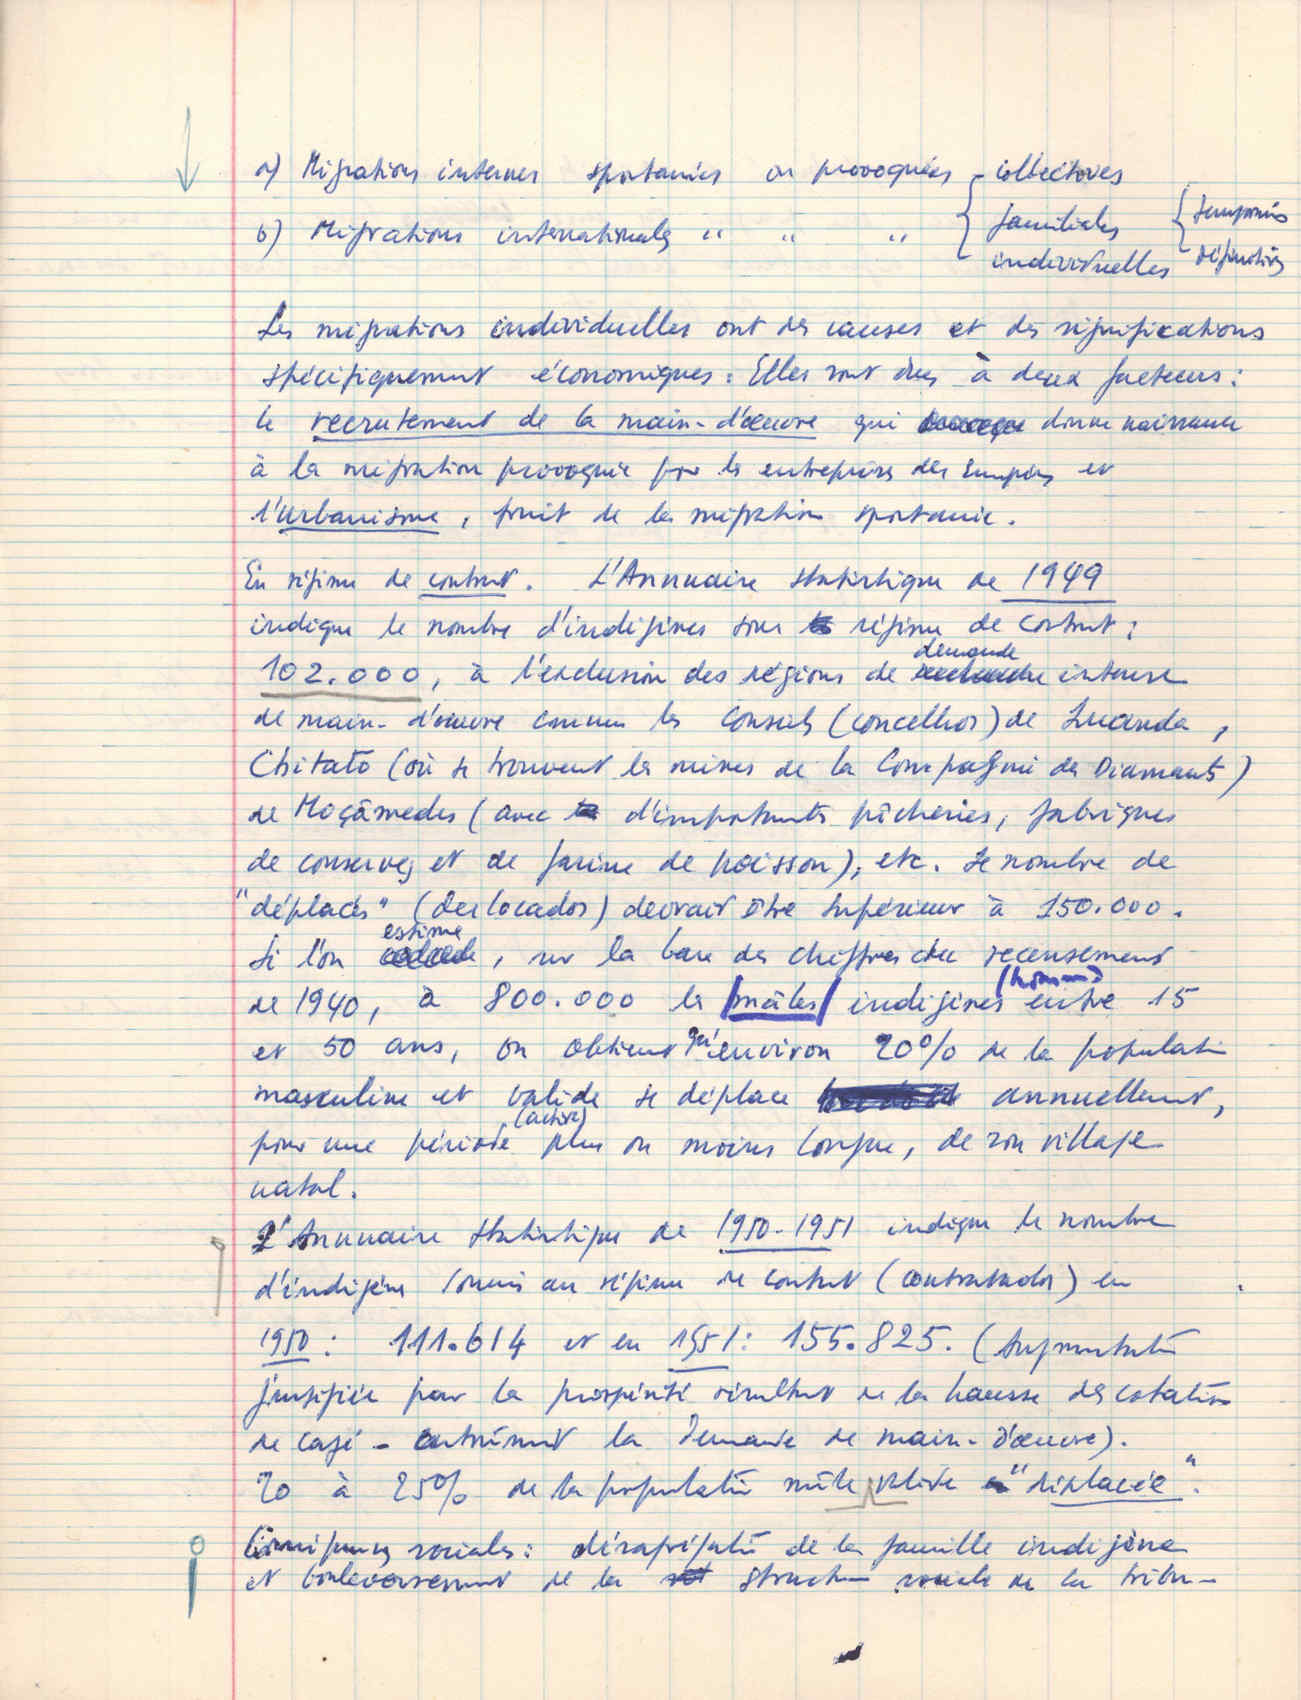 a) Migrations internes spontanées ou provoquées { collectives
b) Migrations internationales " " " { familiales { temporaires
individuelles définitives
Les migrations individuelles ont des causes et des significations
spécifiquement économiques : Elles sont dues à deux facteurs :
le recrutement de la main-d'œuvre qui donne naissance
à la migration provoquée par les entreprises des Européens et
l'urbanisme, fruit de la migration spontanée.
En régime de contrat. L'Annuaire statistique de 1949
indique le nombre d'indigènes sous régime de contrat :
demande
102.000, à l'exclusion des régions de intense
de main-d'œuvre comme les Conseils (concelhos) de Luanda,
Chitato (où se trouvent les mines de la Compagnie des Diamants)
de Moçâmedes (avec d'importants pêcheries, fabriques
de conserves et de farine de poisson), etc. Le nombre de
"déplacés" (deslocados) devrait être supérieur à 150.000.
estime
Si l'on , sur la base des chiffres du recensement
(hommes)
de 1940, à 800.000 les /mâles/ indigènes entre 15
et 50 ans, on obtient qu'environ 20% de la population
masculine et valide se déplace annuellement,
(active)
pour une période plus ou moins longue, de son village
natal.
L'Annuaire statistique de 1950-1951 indique le nombre
d'indigènes soumis au régime de contrat (contratados) en
1950 : 111.614 et en 1951 : 155.825. (Augmentation
justifiée par la prospérité résultant de la hausse des cotations
de café - entraînant la demande de main-d'œuvre).
20 à 25% de la population mâle valide "déplacée".
sociales : désagrégation de la famille indigène
et bouleversement de la structure sociale de la tribu -